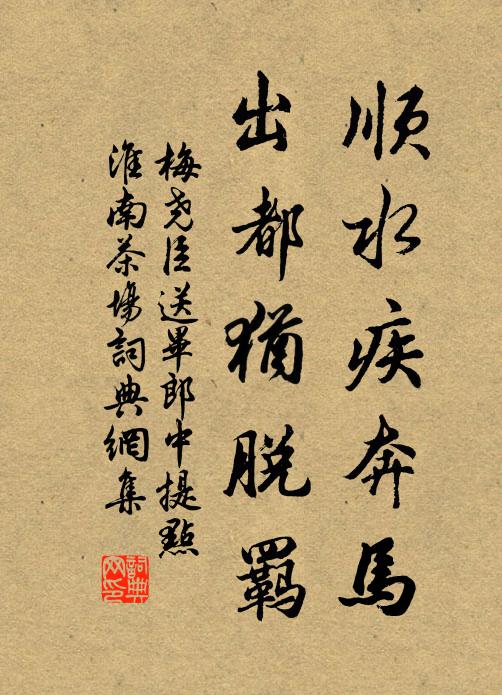 順水疾奔馬
出都猶脫羈
梅堯臣送畢郎中提點
淮南茶場詞典網集
詞典
网印